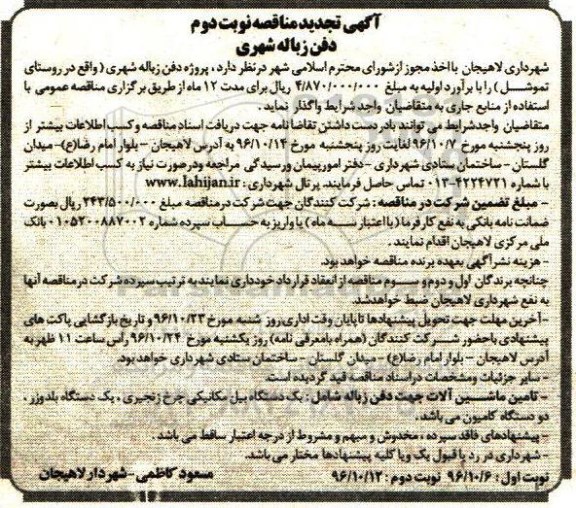 آگهی تجدید مناقصه نوبت دوم
دفن زباله شهری
شهرداری لاهیجان با اخذ مجوز از شورای محترم اسلامی شهر در نظر دارد ، پروژه دفن زباله شهری ( واقع در روستای
تموشل ) را با برآورد اولیه به مبلغ ۴/۸۷۰/۰۰۰/۰۰۰ ریال برای مدت ۱۲ ماه از طریق برگزاری مناقصه عمومی با
استفاده از منابع جاری به متقاضیان واجد شرایط واگذار نماید .
متقاضیان واجد شرایط می توانند با در دست داشتن تقاضا نامه جهت دریافت اسناد مناقصه و کسب اطلاعات بیشتر از
روز پنجشنبه مورخ ۹۶/۱۰/۷ لغایت روز پنجشنبه مورخ ۹۶/۱۰/۱۴ به آدرس لاهیجان – بلوار امام رضا(ع)- میدان
گلستان - ساختمان ستادی شهرداری - دفتر امور پیمان و رسیدگی مراجعه و در صورت نیاز به کسب اطلاعات بیشتر
با شماره ۴۲۲۴۷۲۱-۰۱۳ تماس حاصل فرمایند. پرتال شهرداری : www.lahijan.ir
- مبلغ تضمین شرکت در مناقصه : شرکت کنندگان جهت شرکت در مناقصه مبلغ ۲۴۳/۵۰۰/۰۰۰ ریال بصورت
ضمانت نامه بانکی به نفع کارفرما ( با اعتبار سه ماه ) یا واریز به حساب سپرده شماره ۰۱۰۵۲۰۰۸۸۷۰۰۲ بانک
ملی مرکزی لاهیجان اقدام نمایند .
- هزینه نشر آگهی بعهده برنده مناقصه خواهد بود.
چنانچه برندگان اول و دوم و سوم مناقصه از انعقاد قرارداد خودداری نمایند به ترتیب سپرده شرکت در مناقصه آنها
به نفع شهرداری لاهیجان ضبط خواهد شد.
- آخرین مهلت جهت تحویل پیشنهادها تا پایان وقت اداری روز شنبه مورخ ۹۶/۱۰/۲۳ و تاریخ بازگشایی پاکت های
پیشنهادی با حضور شرکت کنندگان (همراه با معرفی نامه) روز یکشنبه مورخ ۹۶/۱۰/۲۴ رأس ساعت ۱۱ ظهر به
آدرس لاهیجان – بلوار امام رضا(ع) - میدان گلستان - ساختمان ستادی شهرداری خواهد بود.
- سایر جزئیات و مشخصات در اسناد مناقصه قید گردیده است.
- تامین ماشین آلات جهت دفن زباله شامل : یک دستگاه بیل مکانیکی چرخ زنجیری ، یک دستگاه بلدوزر ،
دو دستگاه کامیون می باشد .
- پیشنهادهای فاقد سپرده ، مخدوش و مبهم و مشروط از درجه اعتبار ساقط می باشد .
- شهرداری در رد یا قبول یک و یا کلیه پیشنهادها مختار می باشد.
نوبت اول : ۹۶/۱۰/۶ نوبت دوم : ۹۶/۱۰/۱۳ مسعود کاظمی - شهردار لاهیجان